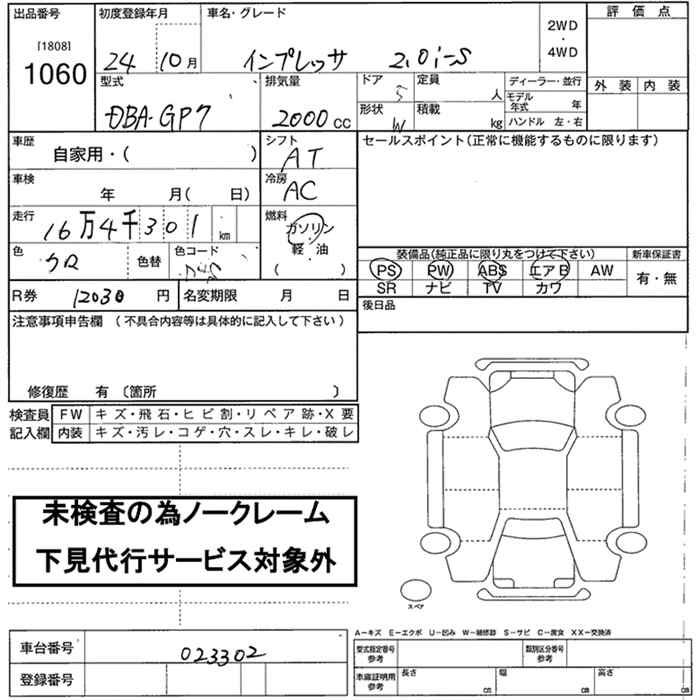 出品番号 初度登録年月 車名・グレード 2WD・4WD 評価点
[1808]
1060
24 10月 インプレッサ 2.0i-S
外装 内装
型式 排気量 ドア 定員 ディーラー・並行
DBA-GP7 2000cc 5 人 モデル年式 年
形状 積載
W kg ハンドル 左・右
車歴 自家用・( ) シフト AT セールスポイント(正常に機能するものに限ります)
車検 年 月( 日) 冷房 AC
走行 16万4千301km 燃料 ガソリン・軽・油 ( )
色 クロ 色替 色コード
装備品(純正品に限り丸をつけて下さい) 新車保証書
PS PW ABS エアB AW 有・無
SR ナビ TV カワ
R券 12030円 名変期限 月 日 後日品
注意事項申告欄 (不具合内容等は具体的に記入して下さい)
修復歴 有 〔箇所 〕
検査員記入欄 FW キズ・飛石・ヒビ割・リペア跡・X要
内装 キズ・汚レ・コゲ・穴・スレ・キレ・破レ
未検査の為ノークレーム
下見代行サービス対象外
スペア
A-キズ E-エクボ U-凹み W-補修跡 S-サビ C-腐食 XX-交換済
車台番号 023302 型式指定番号参考 類別区分番号参考
登録番号 車庫証明用参考 長さ cm 幅 cm 高さ cm